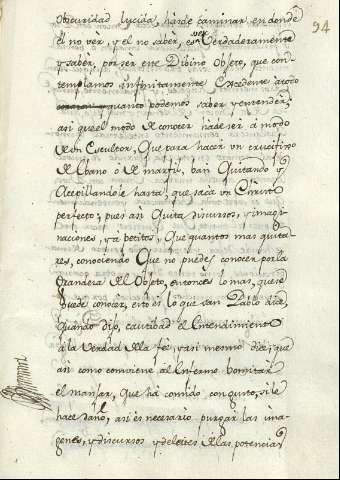 94
obscuridad lucida, hàde caminar en donde
èl no vèr, y el no sabèr, es ver Verdaderamente
y sabèr, por ser este Dibino Objeto, que con-
templamos infinitamente Excedente atodo
quanto podemos saber y entender;
asi que el modo de conocer hà de ser à modo
de un Escultor, Que para hacer un crucifixo
de Ebano o de marfil, bàn Quitando y
Acepillandole hasta que saca un Christo
perfecto; pues asi Quita discursos, y imagi-
naciones, y apetitos, Que quantos mas quita-
res, conociendo Que no puedes conocer por la
Grandeza del Objeto, entonces lo mas, que se
puede conocer, esto es lo que san Pablo dice
Quando dijo, cautibad el Entendimiento
à la Verdad de la feè, y asi mesmo dice, que
asi como conviene al Enfermo bomitar
el manjar, Que hà comido con gusto, si le
hace daño, asi es necesario purgar las ima-
genes, y discursos y deleites de las potencias